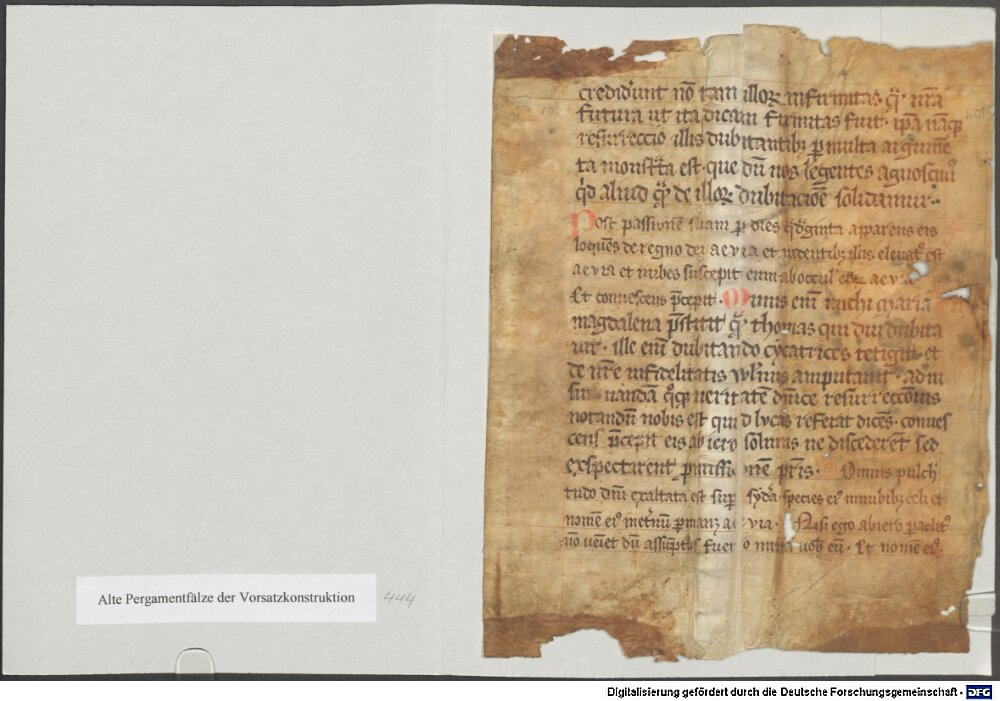 credider̄unt nō tam illoꝝ infirmitas q̄ꝫ nr̄a
futura ut ita dicam firmitas fuit · ip̄a nāqꝫ
resurreccio illis dubitantibꝫ ꝑ multa argum̄e
ta monstrata est · que dū nos legentes agnoscimꝰ
qͥd aliud qͣꝫ de illoꝝ dubitaciōe solidamur ·
Post passionē suam ꝑ dies qͣdͣginta apparens eis
loquēs de regno dei aevia et videntibꝫ illis eleuatꝰ est
aevia et nubes suscepit eum ab occul eoꝝ aevia
Et conuescens p̄cepit · Minus enī michi maria
magdalena p̄stitit qͣꝫ thomas qui diu dubita
uit · ille enī dubitando cycatrices tetigit et
de nr̄e infidelitatis vulnus amputauit · ad in
sinuandā qͦqꝫ ueritatē dn̄ice resurreccōnis
notandū nobis est quid lvcas referat dicēs · conues
cens p̄cepit eis ab iero solimis ne discederēt sed
exspectarent ꝓmissionē pr̄is · Omnis pulch
tudo dn̄i exaltata est suꝑ sydͣa species eiꝰ in nubibꝫ celi et
nomē eiꝰ in etͥnū ꝑmanꝫ aevia · Nisi ego abiero paclitꝰ
nō ueniet dū assūptꝰ fuero mittā uob eū · Et nomē eiꝰ
Alte Pergamentfälze der Vorsatzkonstruktion
444
Digitalisierung gefördert durch die Deutsche Forschungsgemeinschaft - DFG